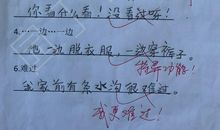 你看什么看！没看过呀！
4.……边……边
他一边脱衣服，一边穿裤子。
特异功能！
5.难过
我家前有条水沟很难过。
我更难过！